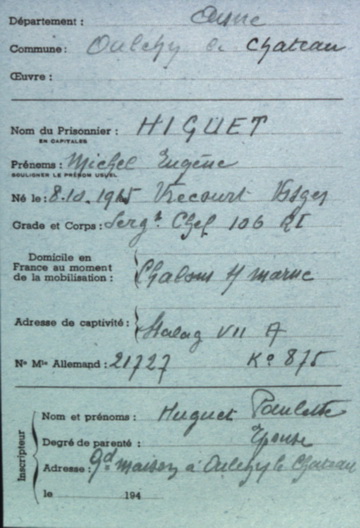 Département : Aisne
Commune : Oulchy le Chateau
Œuvre :
Nom du Prisonnier : HIGUET
EN CAPITALES
Prénoms : Michel Eugène
SOULIGNER LE PRÉNOM USUEL
Né le : 8.10.1915 Vrecourt Vosges
Grade et Corps : Sergt Chef 106 RI
Domicile en
France au moment
de la mobilisation : Chalons s/ marne
Adresse de captivité : Stalag VII A
No Mle Allemand : 21727 Ko 875
Inscripteur
Nom et prénoms : Huguet Paulette
Degré de parenté : Epouse
Adresse : gd maison à Oulchy le Chateau
le 194